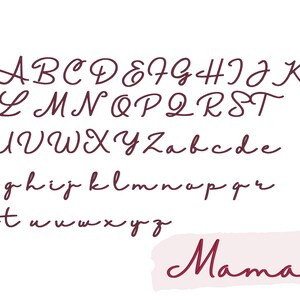 ABCDEFGHIJK
LMNOPQRST
UVWXYZabcde
ghijklmnopqr
tuvwxyz
Mama